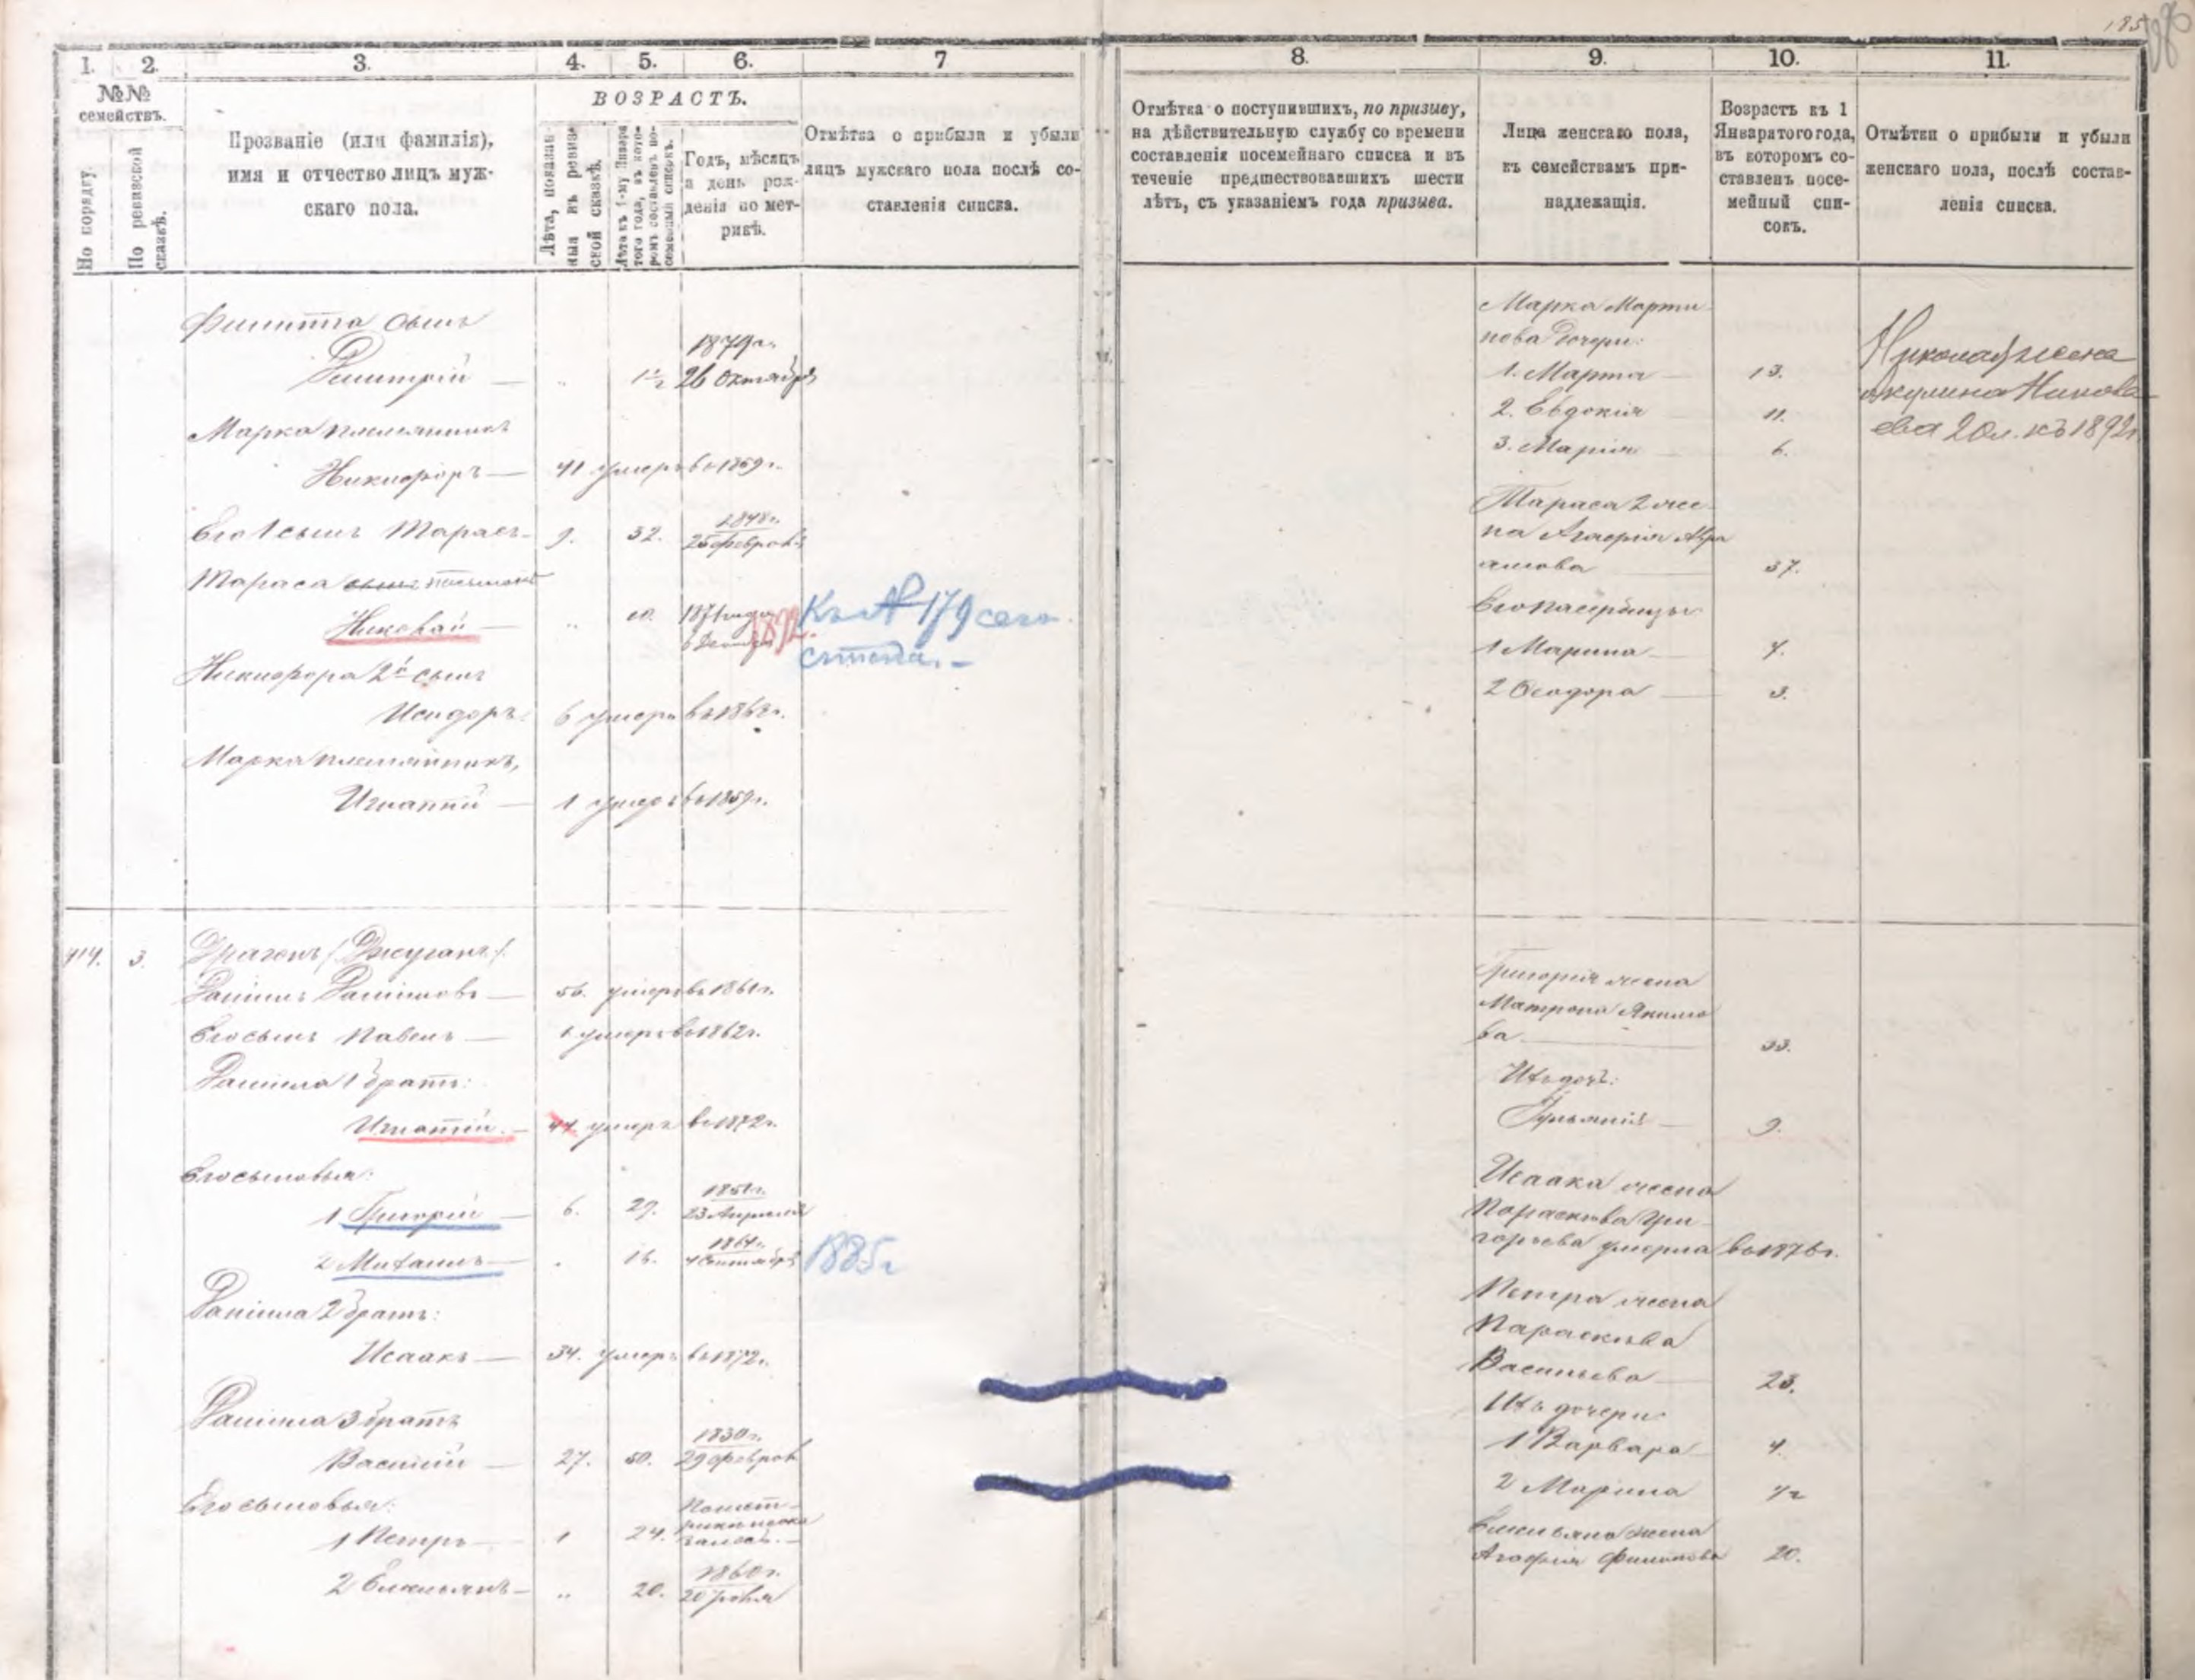 185
1. 2. 3. 4. 5. 6. 7
№№ семействъ.
По порядку.
По ревизской сказкѣ.
Прозваніе (или фамилія),
имя и отчество лицъ муж-
скаго пола.
ВОЗРАСТЪ.
Лѣта, показан-
ныя въ ревиз-
ской сказкѣ.
Лѣта къ 1-му Января
того года, въ кото-
ромъ составленъ по-
семейный списокъ.
Годъ, мѣсяцъ
и день рож-
денія по мет-
рикѣ.
Отмѣтка о прибыли и убыли
лицъ мужскаго пола послѣ со-
ставленія списка.
Филиппа сынъ
1879 г.
Димитрій — „ 1½ 26 Октября
Марка племянникъ
Никифоръ — 41 умеръ въ 1859 г.
1848 г.
Его 1 сынъ Тарасъ — 9. 32. 25 февраля
Тараса сынъ
Николай „ 1871 года 1892 Къ № 179 сего
6 Декабря списка. —
Никифора 2й сынъ
Исидоръ 6 умеръ въ 186 г.
Марка племянникъ,
Игнатій — 1 умеръ въ 1859 г.
414. 3. Драгенъ (Джуганъ).
Даніилъ Даніиловъ — 56. умеръ въ 1861 г.
Его сынъ Павелъ — 1 умеръ въ 1862 г.
Даніила 1 братъ:
Игнатій — 44 умеръ въ 1872 г.
Его сыновья:
1851 г.
1 Григорій — 6. 29. 23 Апреля
1864 г.
2 Михаилъ — „ 16. 4 Сентября 1885 г
Даніила 2 братъ:
Исаакъ — 34. умеръ въ 1872 г.
Даніила 3 братъ
1830 г.
Василій — 27. 50. 29 феврал
Его сыновья:
По мет-
1 Петръ — 1 24. рикѣ не ока-
зался. —
1860 г.
2 Емельянъ — „ 20. 20
8. 9. 10. 11.
Отмѣтка о поступившихъ, по призыву,
на дѣйствительную службу со времени
составленія посемейнаго списка и въ
теченіе предшествовавшихъ шести
лѣтъ, съ указаніемъ года призыва.
Лица женскаго пола,
къ семействамъ при-
надлежащія.
Возрастъ къ 1
Января того года,
въ которомъ со-
ставленъ посе-
мейный спи-
сокъ.
Отмѣтки о прибыли и убыли
женскаго пола, послѣ состав-
ленія списка.
Марка Марти-
нова дочери:
1. Марта — 13.
2. Евдокія 11.
3. Марія — 6.
Николая жена
Акулина Никола-
ева 20 л. къ 1892 г
Тараса 2 же-
на Агафія Авра-
амова — 37.
Его падчерицы
1 Марина — 7.
2 Феодора — 3.
Григорія жена
Матрона Якимо-
ва — 33.
Ихъ дочь:
— 9.
Исаака жена
Параскева Гри-
горьева умерла въ 1876 г.
Петра жена
Параскева
Васильева — 23.
Ихъ дочери
1 Варвара 4.
2 Марина ½
Емельяна жена
Агафія Филипова 20.